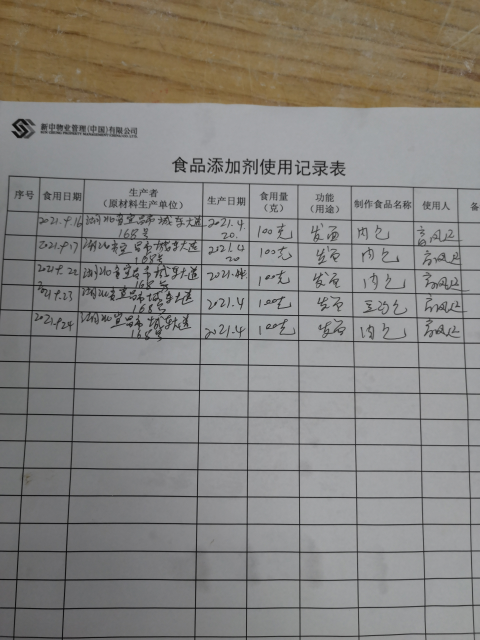 新中物业管理(中国)有限公司
食品添加剂使用记录表
序号 食用日期 生产者（原材料生产单位） 生产日期 食用量（克） 功能（用途） 制作食品名称 使用人 备
2021.9.16 湖北省宜昌市城东大道168号 2021.4.20. 100克 发面 肉包
2021.9.17 湖北省宜昌市城东大道168号 2021.4.20 100克 发面 肉包
2021.9.22 湖北省宜昌市城东大道168号 2021.4 100克 发面 肉包
2021.9.23 湖北省宜昌市城东大道168号 2021.4 100克 发面 豆沙包
2021.9.24 湖北宜昌市城东大道168号 2021.4 100克 发面 肉包